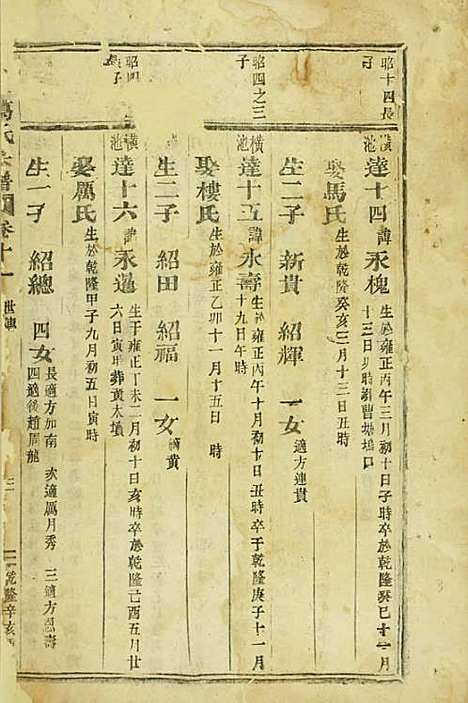 昭十四長子
橫池
達十四 諱永槐 生於雍正丙午三月初十日子時卒於乾隆癸巳十一月
十三日卯時葬曹塘塢口
娶馬氏 生於乾隆癸亥三月十三日丑時
生二子 新貴 紹輝 一女 適方連貴
昭四之三子
橫池
達十五 諱永壽 生於雍正丙午十月初十日丑時卒于乾隆庚子十一月
十九日午時
娶樓氏 生於雍正乙卯十一月十五日 時
生二子 紹田 紹福 一女 貴
昭四
子
橫池
達十六 諱永 生于雍正丁未二月初十日亥時卒於乾隆己酉五月廿
六日寅時葬黃太塘
娶厲氏 生於乾隆甲子九月初五日寅時
生一子 紹總 四女 長適方加南 次適厲月秀 三適方恩壽
四適後趙周龍
氏宗譜 卷十一 世傳 三 乾隆辛亥